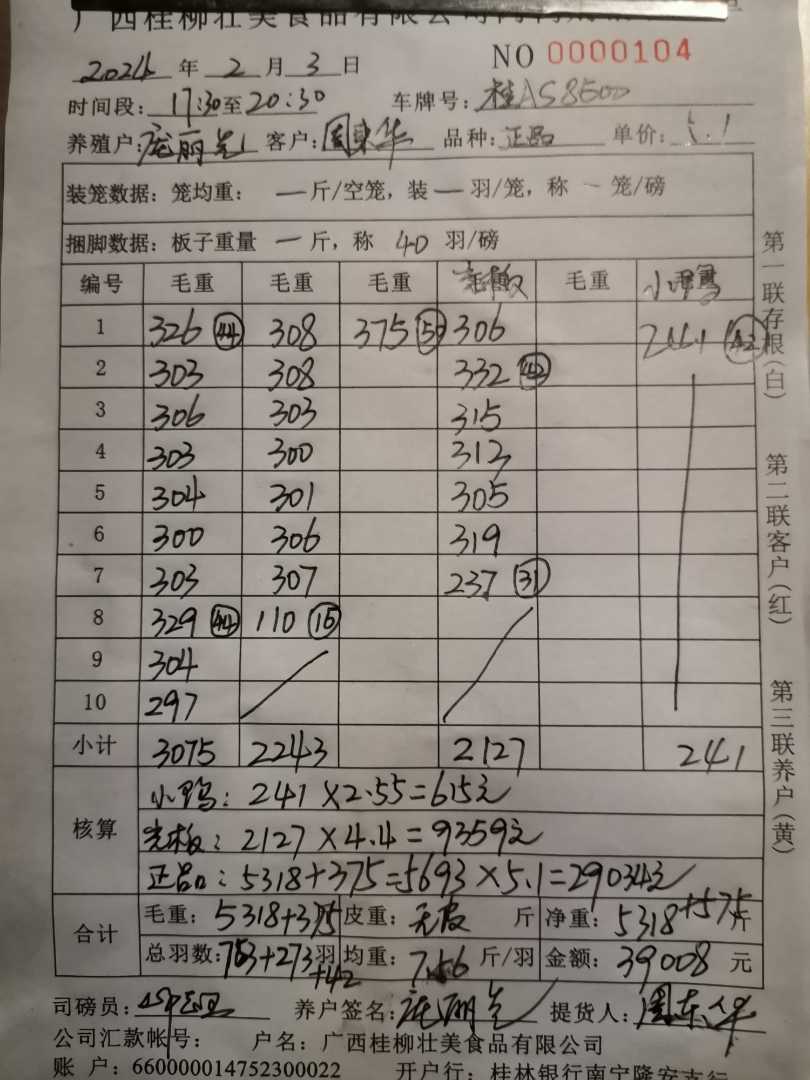 广西桂柳壮美食品有限公司
2024 年 2 月 3 日 NO 0000104
时间段: 17:30 至 20:30 车牌号: 桂AS8500
养殖户: 庞丽 客户: 周东华 品种: 正品 单价: 5.1
装笼数据: 笼均重: 一 斤/空笼, 装 一 羽/笼, 称 一 笼/磅
捆脚数据: 板子重量 一 斤, 称 40 羽/磅
编号 毛重 毛重 毛重 毛重 小鸭
1 326 44 308 375 306 241 42
2 303 308 332
3 306 303 315
4 303 300 312
5 304 301 305
6 300 306 319
7 303 307 237 31
8 329 44 110 15
9 304
10 297
小计 3075 2243 2127 241
核算 小鸭: 241×2.55=615元
光板: 2127×4.4=9359元
正品: 5318+375=5693×5.1=29034元
合计 毛重: 5318+375 皮重: 无皮 斤 净重: 5318+375 斤
总羽数: 753+273+42 羽 均重: 7.56 斤/羽 金额: 39008 元
司磅员: 养户签名: 庞丽 提货人: 周东华
公司汇款帐号: 户名: 广西桂柳壮美食品有限公司
账 户: 660000014752300022 开户行: 桂林银行南宁隆安支行
第一联存根(白) 第二联客户(红) 第三联养户(黄)